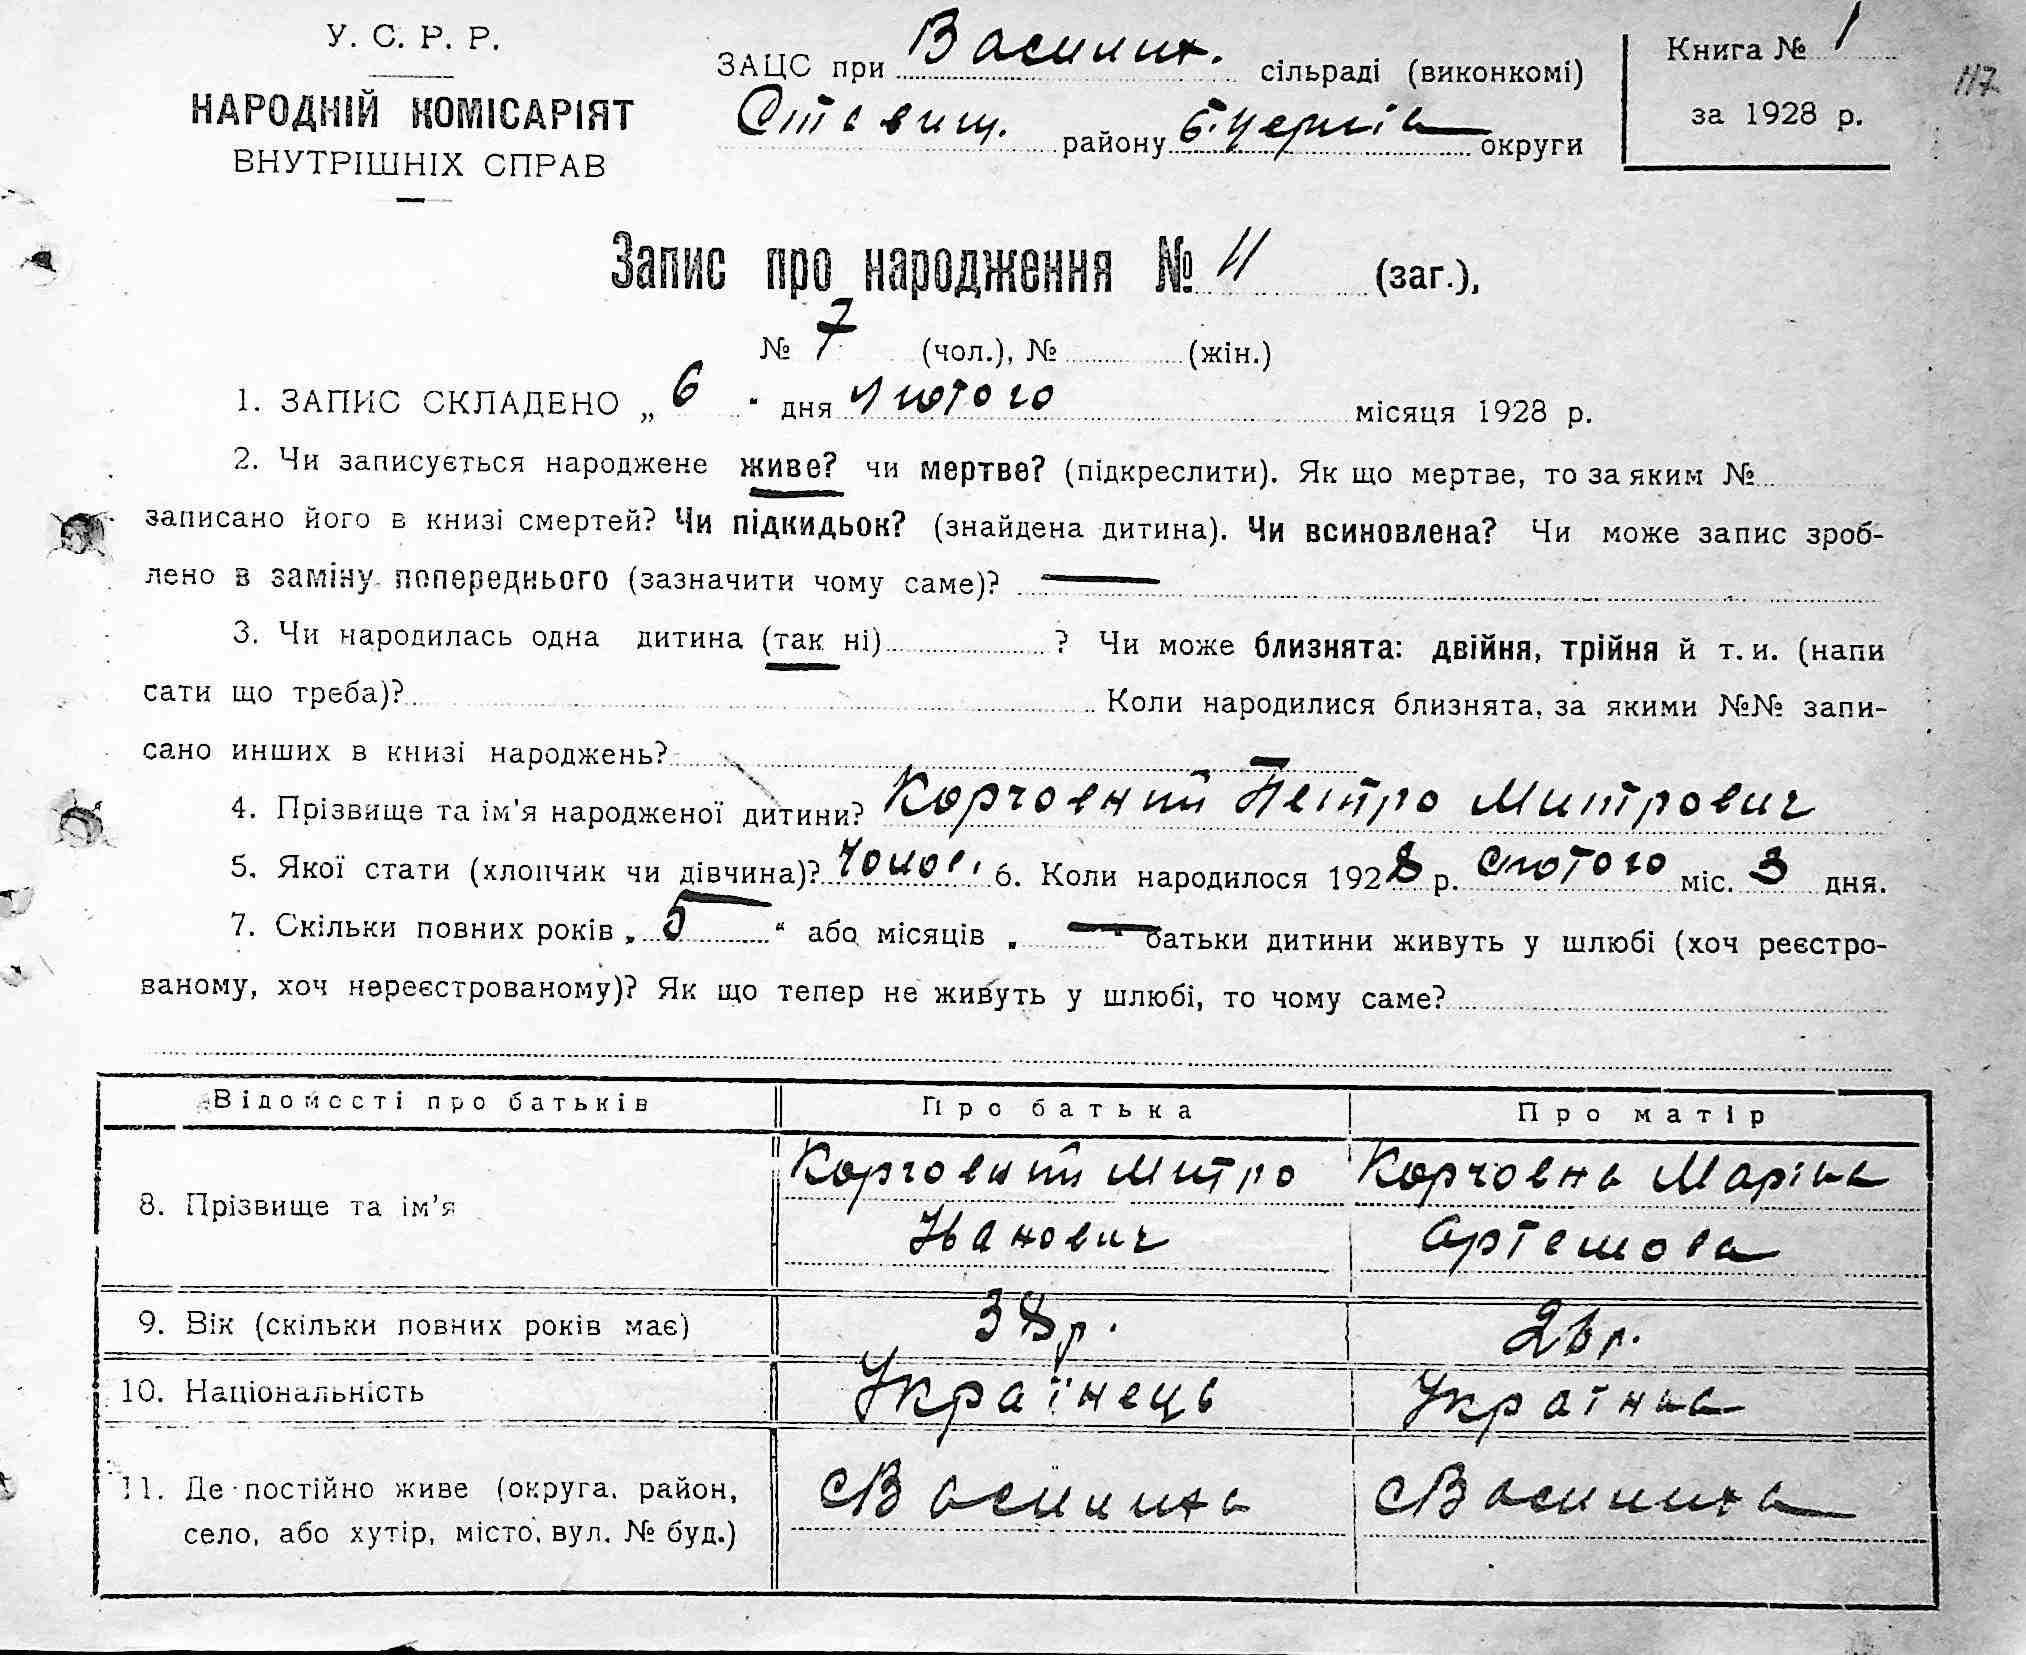 У. С. Р. Р.
НАРОДНІЙ КОМІСАРІЯТ
ВНУТРІШНІХ СПРАВ
ЗАЦС при Василих. сільраді (виконкомі)
Ставищ. району Б. Церків округи
Книга № 1
за 1928 р.
117
Запис про народження № 11 (заг.),
№ 7 (чол.), № (жін.)
1. ЗАПИС СКЛАДЕНО „ 6 " дня лютого місяця 1928 р.
2. Чи записується народжене живе? чи мертве? (підкреслити). Як що мертве, то за яким №
записано його в книзі смертей? Чи підкидьок? (знайдена дитина). Чи всиновлена? Чи може запис зроб-
лено в заміну попереднього (зазначити чому саме)? —
3. Чи народилась одна дитина (так ні) ? Чи може близнята: двійня, трійня й т. и. (напи
сати що треба)? Коли народилися близнята, за якими №№ запи-
сано инших в книзі народжень?
4. Прізвище та ім'я народженої дитини? Корчовний Петро Митрович
5. Якої стати (хлопчик чи дівчина)? Чолов. 6. Коли народилося 1928 р. Лютого міс. 3 дня.
7. Скільки повних років „ 5 " або місяців „ — " батьки дитини живуть у шлюбі (хоч реєстро-
ваному, хоч нереєстрованому)? Як що тепер не живуть у шлюбі, то чому саме?
Відомості про батьків Про батька Про матір
8. Прізвище та ім'я Корчовний Митро Іванович Корчовна Марія Артемова
9. Вік (скільки повних років має) 38 р. 26 р.
10. Національність Українець Українка
11. Де постійно живе (округа, район,
село, або хутір, місто, вул. № буд.) с Василиха с Василиха